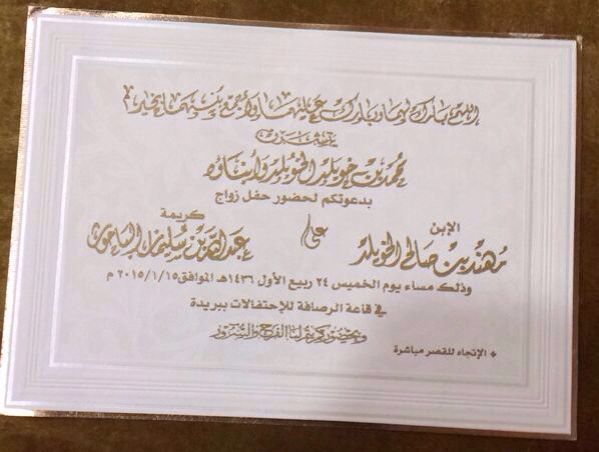 اللهم بارك لهما وبارك عليهما واجمع بينهما بخير
يتشرف
محمد بن خويلد الخويلد وأبناؤه
بدعوتكم لحضور حفل زواج
الإبن
مهند بن صالح الخويلد
على
كريمة
عبدالله بن سليمان السابق
وذلك مساء يوم الخميس ٢٤ ربيع الأول ١٤٣٦هـ الموافق ٢٠١٥/١/١٥ م
في قاعة الرصافة للإحتفالات ببريدة
وبحضوركم لنا الفرح والسرور
الإتجاه للقصر مباشرة